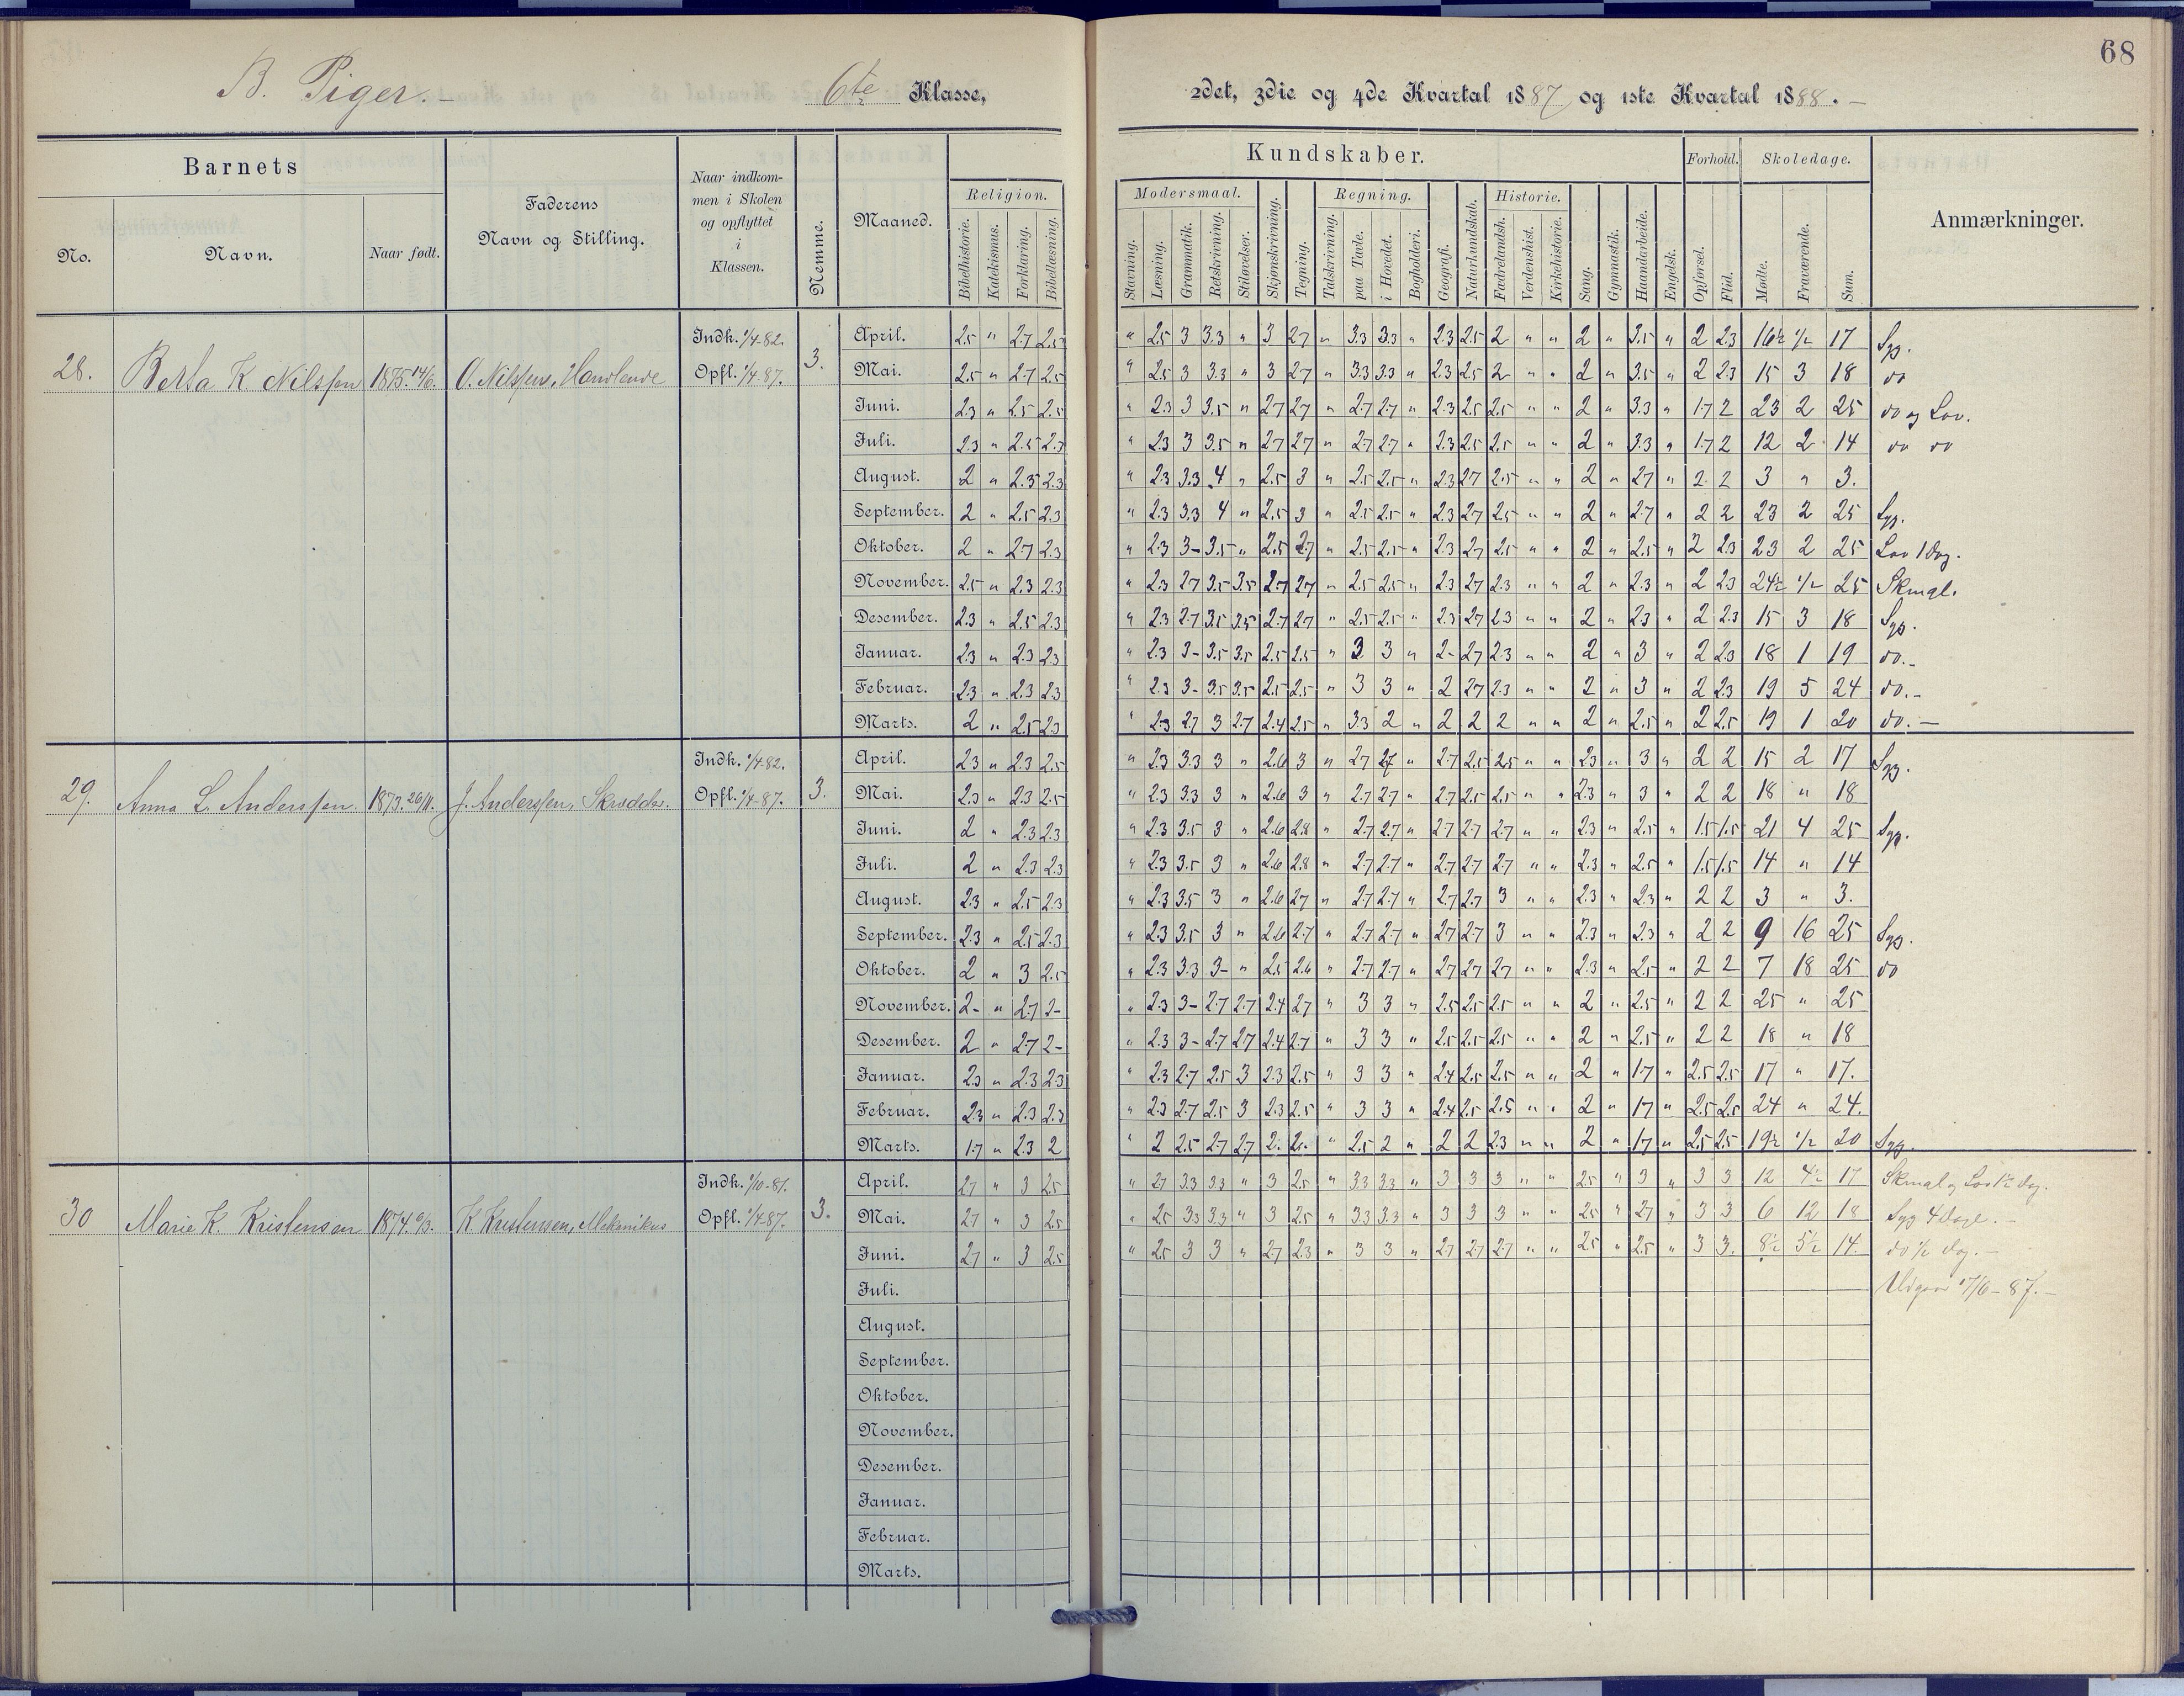 68
B. Piger. 6te Klasse, 2det, 3die og 4de Kvartal 1887 og 1ste Kvartal 1888.
Barnets
No.
Navn.
Naar født.
Faderens
Navn og Stilling.
Naar indkom-
men i Skolen
og opflyttet
i
Klassen.
Nemme.
Maaned.
Kundskaber.
Religion.
Bibelhistorie. Katekismus. Forklaring. Bibellæsning.
Modersmaal.
Stavning. Læsning. Grammatik. Retskrivning. Stiløvelser.
Skjønskrivning. Tegning.
Regning.
Talskrivning. paa Tavle. i Hovedet. Bogholderi.
Geografi. Naturkundskab.
Historie.
Fædrelandsh. Verdenshist. Kirkehistorie.
Sang. Gymnastik. Haandarbeide. Engelsk.
Forhold.
Opførsel. Flid.
Skoledage.
Mødte. Fraværende. Sum.
Anmærkninger.
28. Berta K Nilssen 1875 14/6. O. Nilssen, Handlende Indk. 1/4-82. Opfl. 1/4-87. 3.
April. 2.5 " 2.7 2.5 " 2.5 3 3.3 " 3 2.7 " 3.3 3.3 " 2.3 2.5 2 " " 2 " 3.5 " 2 2.3 16½ ½ 17 Syg.
Mai. 2.5 " 2.7 2.5 " 2.5 3 3.3 " 3 2.7 " 3.3 3.3 " 2.3 2.5 2 " " 2 " 3.5 " 2 2.3 15 3 18 do
Juni. 2.3 " 2.5 2.5 " 2.3 3 3.5 " 2.7 2.7 " 2.7 2.7 " 2.3 2.5 2.5 " " 2 " 3.3 " 1.7 2 23 2 25 do og Lov.
Juli. 2.3 " 2.5 2.3 " 2.3 3 3.5 " 2.7 2.7 " 2.7 2.7 " 2.3 2.5 2.5 " " 2 " 3.3 " 1.7 2 12 2 14 do do
August. 2 " 2.5 2.3 " 2.3 3.3 4 " 2.5 3 " 2.5 2.5 " 2.3 2.7 2.5 " " 2 " 2.7 " 2 2 3 " 3.
September. 2 " 2.5 2.3 " 2.3 3.3 4 " 2.5 3 " 2.5 2.5 " 2.3 2.7 2.5 " " 2 " 2.7 " 2 2 23 2 25 Syg.
Oktober. 2 " 2.7 2.3 " 2.3 3- 3.5 " 2.5 2.7 " 2.5 2.5 " 2.3 2.7 2.5 " " 2 " 2.5 " 2 2.3 23 2 25 Lov 1 dag.
November. 2.5 " 2.3 2.3 " 2.3 2.7 3.5 3.5 2.7 2.7 " 2.5 2.5 " 2.3 2.7 2.3 " " 2 " 2.3 " 2 2.3 24½ ½ 25 Skmgl.
Desember. 2.3 " 2.5 2.3 " 2.3 2.7 3.5 3.5 2.7 2.7 " 2.5 2.5 " 2.3 2.7 2.3 " " 2 " 2.3 " 2 2.3 15 3 18 Syg.
Januar. 2.3 " 2.3 2.3 " 2.3 3- 3.5 3.5 2.5 2.5 " 3 3 " 2- 2.7 2.3 " " 2 " 3 " 2 2.3 18 1 19 do.-
Februar. 2.3 " 2.3 2.3 " 2.3 3- 3.5 3.5 2.5 2.5 " 3 3 " 2 2.7 2.3 " " 2 " 3 " 2 2.3 19 5 24 do.-
Marts. 2 " 2.5 2.3 " 2.3 2.7 3 2.7 2.4 2.5 " 3.3 2 " 2 2 2 " " 2 " 2.5 " 2 2.5 19 1 20 do.-
29. Anna L. Anderssen. 1873. 26/11. J. Anderssen, Skrædder. Indk. 1/4-82. Opfl. 1/4-87. 3.
April. 2.3 " 2.3 2.5 " 2.3 3.3 3 " 2.6 3 " 2.7 2.7 " 2.7 2.5 2.5 " " 2.3 " 3 " 2 2 15 2 17 Syg.
Mai. 2.3 " 2.3 2.5 " 2.3 3.3 3 " 2.6 3 " 2.7 2.7 " 2.7 2.5 2.5 " " 2.3 " 3 " 2 2 18 " 18
Juni. 2 " 2.3 2.3 " 2.3 3.5 3 " 2.6 2.8 " 2.7 2.7 " 2.7 2.7 2.7 " " 2.3 " 2.5 " 1.5 1.5 21 4 25 Syg.
Juli. 2 " 2.3 2.3 " 2.3 3.5 3 " 2.6 2.8 " 2.7 2.7 " 2.7 2.7 2.7 " " 2.3 " 2.5 " 1.5 1.5 14 " 14
August. 2.3 " 2.5 2.3 " 2.3 3.5 3 " 2.6 2.7 " 2.7 2.7 " 2.7 2.7 3 " " 2.3 " 2.3 " 2 2 3 " 3.
September. 2.3 " 2.5 2.3 " 2.3 3.5 3 " 2.6 2.7 " 2.7 2.7 " 2.7 2.7 3 " " 2.3 " 2.3 " 2 2 9 16 25 Syg.
Oktober. 2 " 3 2.5 " 2.3 3.3 3- " 2.5 2.6 " 2.7 2.7 " 2.7 2.7 2.7 " " 2.3 " 2.5 " 2 2 7 18 25 do
November. 2- " 2.7 2- " 2.3 3- 2.7 2.7 2.4 2.7 " 3 3 " 2.5 2.5 2.5 " " 2 " 2.5 " 2 2 25 " 25
Desember. 2 " 2.7 2- " 2.3 3- 2.7 2.7 2.4 2.7 " 3 3 " 2.5 2.5 2.5 " " 2 " 2.5 " 2 2 18 " 18
Januar. 2.3 " 2.3 2.3 " 2.3 2.7 2.5 3 2.3 2.5 " 3 3 " 2.4 2.5 2.5 " " 2 " 1.7 " 2.5 2.5 17 " 17.
Februar. 2.3 " 2.3 2.3 " 2.3 2.7 2.5 3 2.3 2.5 " 3 3 " 2.4 2.5 2.5 " " 2 " 1.7 " 2.5 2.5 24 " 24.
Marts. 1.7 " 2.3 2 " 2 2.5 2.7 2.7 2. 2. " 2.5 2 " 2 2 2.3 " " 2 " 1.7 " 2.5 2.5 19½ ½ 20 Syg.
30 Marie K. Kristensen 1874. 6/3. K Kristensen, Mekanikus Indk. 1/10-81. Opfl. 1/4-87. 3.
April. 2.7 " 3 2.5 " 2.7 3.3 3.3 " 3 2.5 " 3.3 3.3 " 3 3 3 " " 2.5 " 3 " 3 3 12 4½ 17 Skmgl og Lov 1½ dag.
Mai. 2.7 " 3 2.5 " 2.5 3.3 3.3 " 3 2.5 " 3.3 3.3 " 3 3 3 " " 2.5 " 2.7 " 3 3 6 12 18 Syg 4 dage.-
Juni. 2.7 " 3 2.5 " 2.5 3 3 " 2.7 2.3 " 3 3 " 2.7 2.7 2.7 " " 2.5 " 2.5 " 3 3. 8½ 5½ 14. do ½ dag.
Juli. 17/6-87.-
August.
September.
Oktober.
November.
Desember.
Januar.
Februar.
Marts.